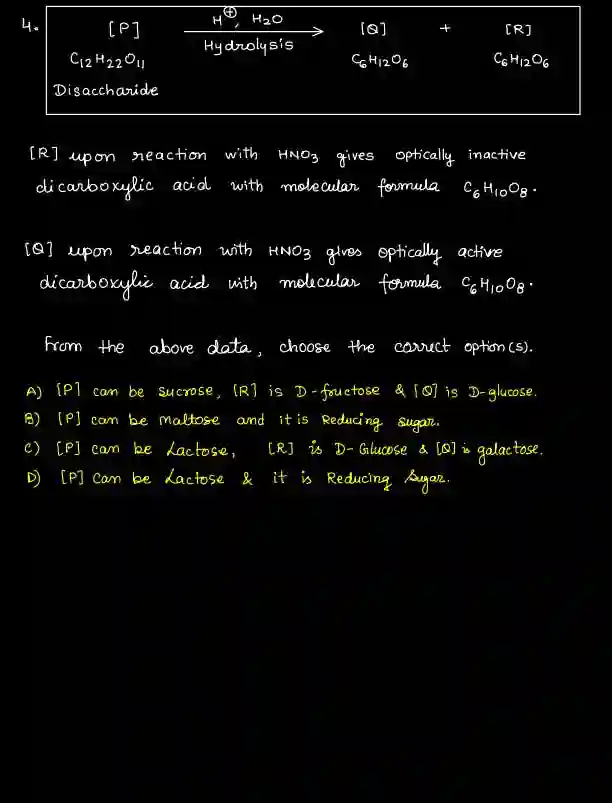 4. [P] H⊕, H2O [Q] + [R]
Hydrolysis
C12H22O11 C6H12O6 C6H12O6
Disaccharide
[R] upon reaction with HNO3 gives optically inactive
dicarboxylic acid with molecular formula C6H10O8.
[Q] upon reaction with HNO3 gives optically active
dicarboxylic acid with molecular formula C6H10O8.
From the above data, choose the correct option(s).
A) [P] can be sucrose, [R] is D-fructose & [Q] is D-glucose.
B) [P] can be maltose and it is Reducing sugar.
C) [P] can be Lactose, [R] is D-Glucose & [Q] is galactose.
D) [P] Can be Lactose & it is Reducing Sugar.